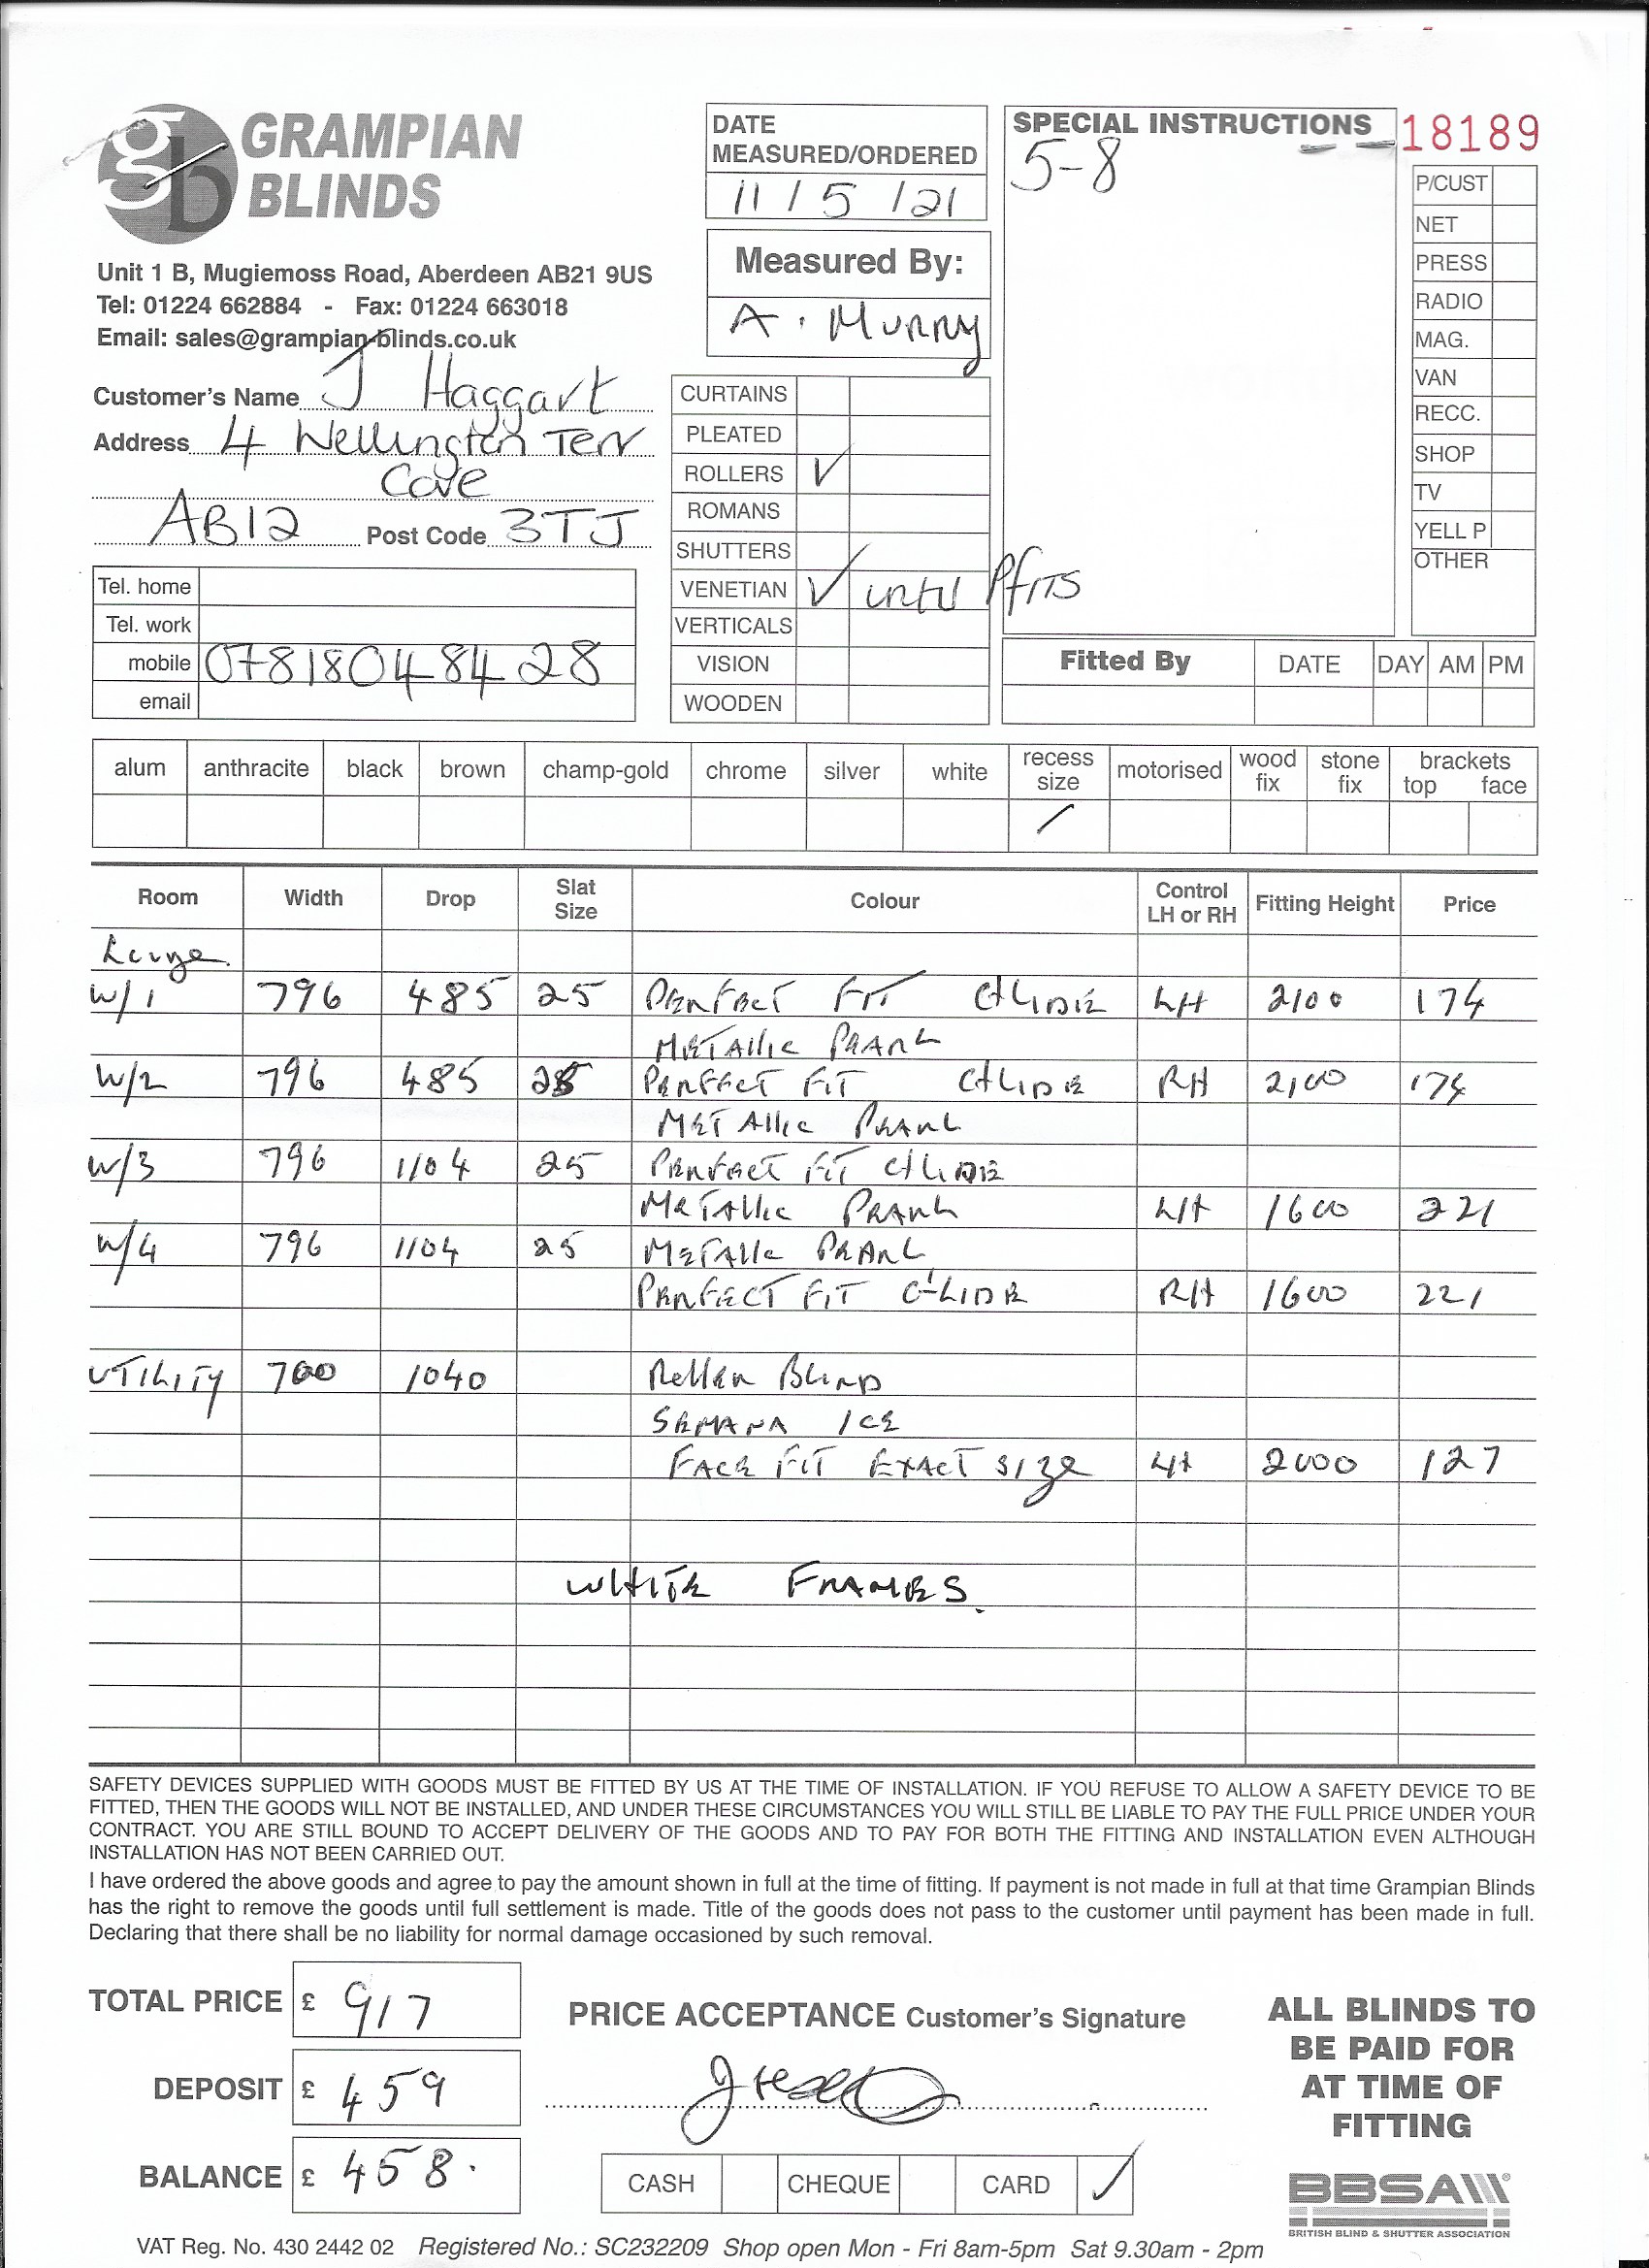 gb GRAMPIAN BLINDS
Unit 1 B, Mugiemoss Road, Aberdeen AB21 9US
Tel: 01224 662884 - Fax: 01224 663018
Email: sales@grampian-blinds.co.uk
Customer's Name J Haggart
Address 4 Wellington Terr
Cove
AB12 Post Code 3TJ
Tel. home
Tel. work
mobile 07818048428
email
DATE
MEASURED/ORDERED
11 / 5 / 21
Measured By:
A. Murry
CURTAINS
PLEATED
ROLLERS ✓
ROMANS
SHUTTERS
VENETIAN ✓ Pfits
VERTICALS
VISION
WOODEN
SPECIAL INSTRUCTIONS
5-8
18189
P/CUST
NET
PRESS
RADIO
MAG.
VAN
RECC.
SHOP
TV
YELL P
OTHER
Fitted By DATE DAY AM PM
alum anthracite black brown champ-gold chrome silver white recess size motorised wood fix stone fix brackets top face
/
Room Width Drop Slat Size Colour Control LH or RH Fitting Height Price
Lounge
W/1 796 485 25 PERFECT FIT CLIDE LH 2100 174
METALLIC PEARL
W/2 796 485 25 PERFECT FIT CLIDE RH 2100 174
METALLIC PEARL
W/3 796 1104 25 PERFECT FIT CLIDE
METALLIC PEARL LH 1600 221
W/4 796 1104 25 METALLIC PEARL
PERFECT FIT CLIDE RH 1600 221
UTILITY 700 1040 Roller BLIND
ICE
FACE FIT EXACT SIZE LH 2000 127
WHITE FRAMES.
SAFETY DEVICES SUPPLIED WITH GOODS MUST BE FITTED BY US AT THE TIME OF INSTALLATION. IF YOU REFUSE TO ALLOW A SAFETY DEVICE TO BE
FITTED, THEN THE GOODS WILL NOT BE INSTALLED, AND UNDER THESE CIRCUMSTANCES YOU WILL STILL BE LIABLE TO PAY THE FULL PRICE UNDER YOUR
CONTRACT. YOU ARE STILL BOUND TO ACCEPT DELIVERY OF THE GOODS AND TO PAY FOR BOTH THE FITTING AND INSTALLATION EVEN ALTHOUGH
INSTALLATION HAS NOT BEEN CARRIED OUT.
I have ordered the above goods and agree to pay the amount shown in full at the time of fitting. If payment is not made in full at that time Grampian Blinds
has the right to remove the goods until full settlement is made. Title of the goods does not pass to the customer until payment has been made in full.
Declaring that there shall be no liability for normal damage occasioned by such removal.
TOTAL PRICE £ 917
DEPOSIT £ 459
BALANCE £ 458.
PRICE ACCEPTANCE Customer's Signature
CASH CHEQUE CARD ✓
ALL BLINDS TO
BE PAID FOR
AT TIME OF
FITTING
BBSA
BRITISH BLIND & SHUTTER ASSOCIATION
VAT Reg. No. 430 2442 02 Registered No.: SC232209 Shop open Mon - Fri 8am-5pm Sat 9.30am - 2pm